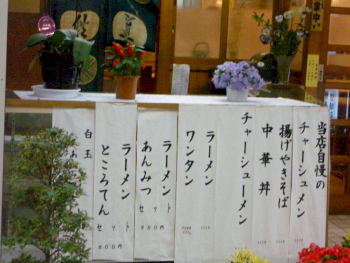 当店自慢の
チャーシュメン
揚げやきそば
中華丼
チャーシューメン
ラーメン
ワンタン
ラーメン
あんみつ
セット
ラーメン
ところてん
セット
白玉